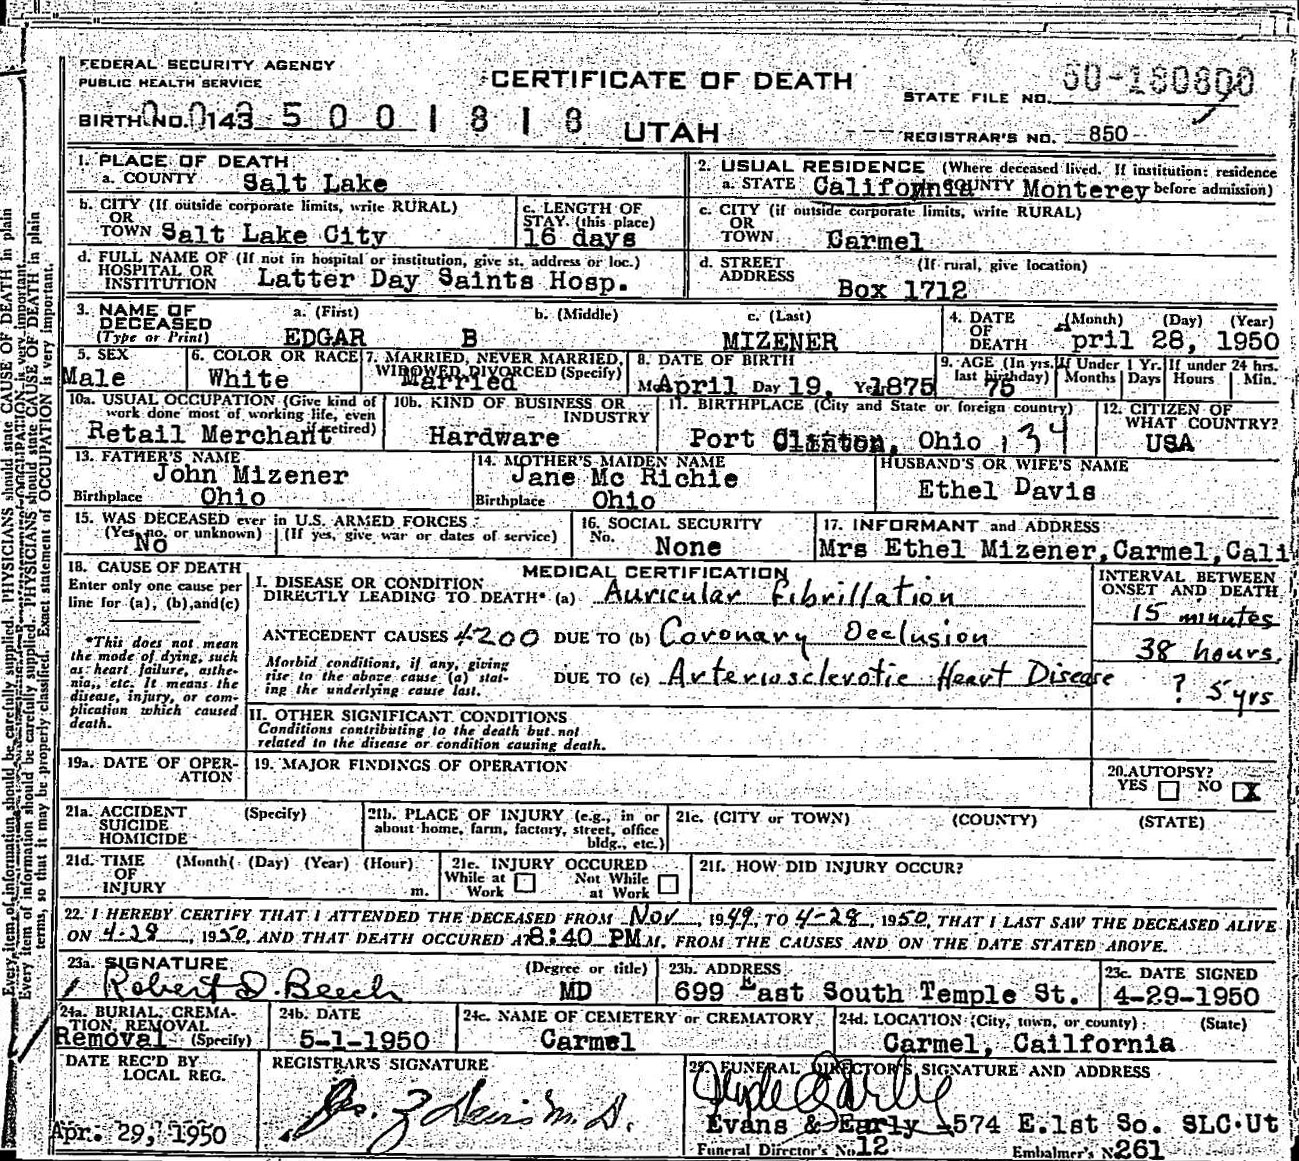 FEDERAL SECURITY AGENCY
PUBLIC HEALTH SERVICE
CERTIFICATE OF DEATH
STATE FILE NO.
BIRTH NO. 0143 5 0 0 1 8 1 8
UTAH
REGISTRAR'S NO. 850
1. PLACE OF DEATH
a. COUNTY Salt Lake
2. USUAL RESIDENCE (Where deceased lived. If institution: residence before admission)
a. STATE California COUNTY Monterey
b. CITY (If outside corporate limits, write RURAL)
OR
TOWN Salt Lake City
c. LENGTH OF
STAY (this place)
16 days
c. CITY (if outside corporate limits, write RURAL)
OR
TOWN Carmel
d. FULL NAME OF (If not in hospital or institution, give st. address or loc.)
HOSPITAL OR
INSTITUTION Latter Day Saints Hosp.
d. STREET (If rural, give location)
ADDRESS Box 1712
3. NAME OF
DECEASED
(Type or Print)
a. (First) b. (Middle) c. (Last)
EDGAR B MIZENER
4. DATE (Month) (Day) (Year)
OF
DEATH April 28, 1950
5. SEX
Male
6. COLOR OR RACE
White
7. MARRIED, NEVER MARRIED,
WIDOWED DIVORCED (Specify)
Married
8. DATE OF BIRTH
Mo April Day 19, Yr 1875
9. AGE (In yrs. last birthday) 75
If Under 1 Yr. Months Days
If under 24 hrs. Hours Min.
10a. USUAL OCCUPATION (Give kind of
work done most of working life, even
if retired)
Retail Merchant
10b. KIND OF BUSINESS OR
INDUSTRY
Hardware
11. BIRTHPLACE (City and State or foreign country)
Port Clinton, Ohio 134
12. CITIZEN OF
WHAT COUNTRY?
USA
13. FATHER'S NAME
John Mizener
Birthplace Ohio
14. MOTHER'S MAIDEN NAME
Jane Mc Richie
Birthplace Ohio
HUSBAND'S OR WIFE'S NAME
Ethel Davis
15. WAS DECEASED ever in U.S. ARMED FORCES
(Yes, no, or unknown) (If yes, give war or dates of service)
No
16. SOCIAL SECURITY
No.
None
17. INFORMANT and ADDRESS
Mrs Ethel Mizener, Carmel, Cali
18. CAUSE OF DEATH
Enter only one cause per
line for (a), (b), and (c)
*This does not mean
the mode of dying, such
as heart failure, asthe-
nia, etc. It means the
disease, injury, or com-
plication which caused
death.
MEDICAL CERTIFICATION
I. DISEASE OR CONDITION
DIRECTLY LEADING TO DEATH* (a) Auricular Fibrillation
ANTECEDENT CAUSES 4200 DUE TO (b) Coronary Occlusion
Morbid conditions, if any, giving
rise to the above cause (a) stat-
ing the underlying cause last.
DUE TO (c) Arteriosclerotic Heart Disease
II. OTHER SIGNIFICANT CONDITIONS
Conditions contributing to the death but not
related to the disease or condition causing death.
INTERVAL BETWEEN
ONSET AND DEATH
15 minutes
38 hours
? 5 yrs
19a. DATE OF OPER-
ATION
19. MAJOR FINDINGS OF OPERATION
20. AUTOPSY?
YES NO X
21a. ACCIDENT (Specify)
SUICIDE
HOMICIDE
21b. PLACE OF INJURY (e.g., in or
about home, farm, factory, street, office
bldg., etc.)
21c. (CITY or TOWN) (COUNTY) (STATE)
21d. TIME (Month) (Day) (Year) (Hour)
OF
INJURY m.
21e. INJURY OCCURED
While at Work Not While at Work
21f. HOW DID INJURY OCCUR?
22. I HEREBY CERTIFY THAT I ATTENDED THE DECEASED FROM Nov 1949, TO 4-28, 1950, THAT I LAST SAW THE DECEASED ALIVE
ON 4-28, 1950, AND THAT DEATH OCCURED AT 8:40 PM M. FROM THE CAUSES AND ON THE DATE STATED ABOVE.
23a. SIGNATURE (Degree or title)
Robert D. Beech MD
23b. ADDRESS
699 East South Temple St.
23c. DATE SIGNED
4-29-1950
24a. BURIAL, CREMA-
TION, REMOVAL
(Specify)
Removal
24b. DATE
5-1-1950
24c. NAME OF CEMETERY or CREMATORY
Carmel
24d. LOCATION (City, town, or county) (State)
Carmel, Cailfornia
DATE REC'D BY
LOCAL REG.
Apr. 29, 1950
REGISTRAR'S SIGNATURE
M.D.
25. FUNERAL DIRECTOR'S SIGNATURE AND ADDRESS
Evans & Early 574 E.1st So. SLC.Ut
Funeral Director's No 12 Embalmer's No 261
Every item of information should be carefully supplied. PHYSICIANS should state CAUSE OF DEATH in plain
terms, so that it may be properly classified. Exact statement of OCCUPATION is very important.